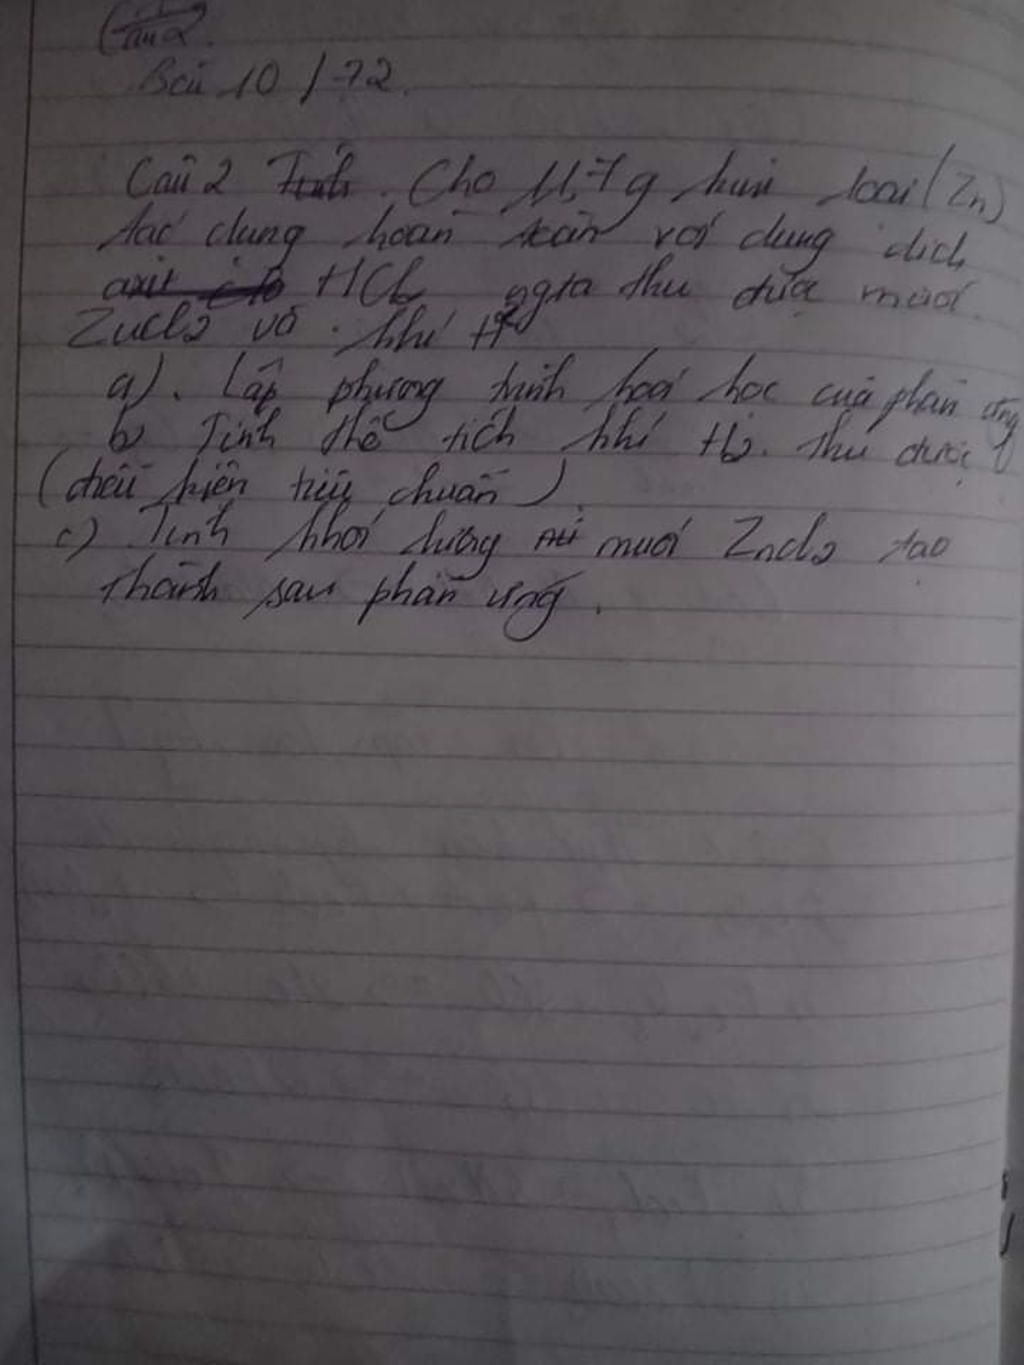 Câu 2.
Bài 10 / 72.
Câu 2 Tính. Cho 11,7 g kim loại (Zn)
tác dụng hoàn toàn với dung dịch
axit HCl ngta thu được muối
ZnCl2 và khí H2
a). Lập phương trình hoá học của phản ứng
b) Tính thể tích khí H2. thu được
(điều kiện tiêu chuẩn).
c) Tính khối lượng muối ZnCl2 tạo
thành sau phản ứng.